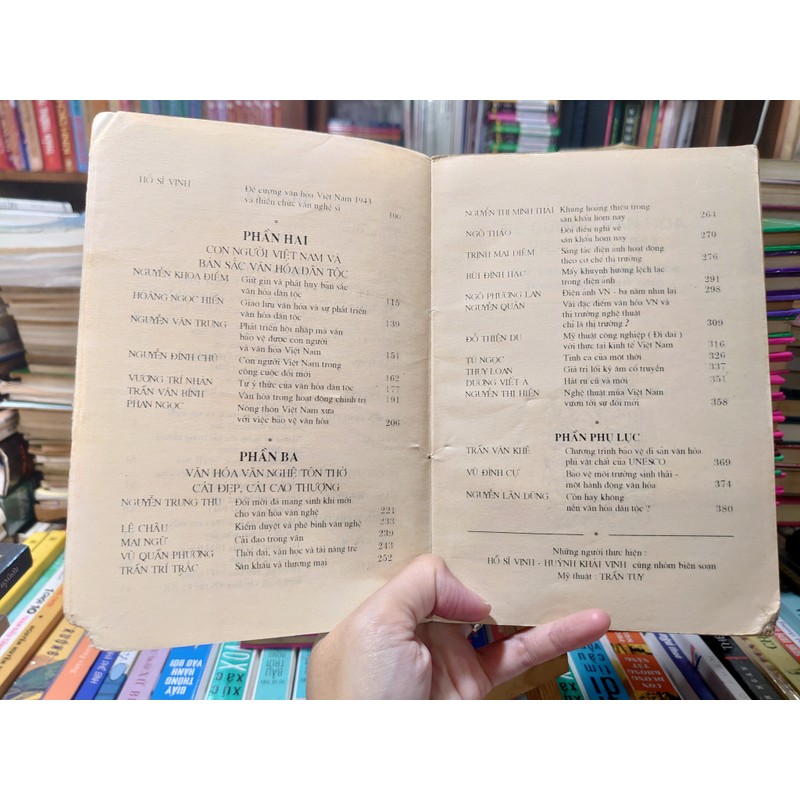 HỒ SĨ VỊNH
Đề cương văn hóa Việt Nam 1943
và thiên chức văn nghệ sĩ
100
PHẦN HAI
CON NGƯỜI VIỆT NAM VÀ
BẢN SẮC VĂN HÓA DÂN TỘC
NGUYỄN KHOA ĐIỀM Giữ gìn và phát huy bản sắc
văn hóa dân tộc 115
HOÀNG NGỌC HIẾN Giao lưu văn hóa và sự phát triển
văn hóa dân tộc 139
NGUYỄN VĂN TRUNG Phát triển hội nhập mà vẫn
bảo vệ được con người
và văn hóa Việt Nam 151
NGUYỄN ĐÌNH CHÚ Con người Việt Nam trong
công cuộc đổi mới 162
VƯƠNG TRÍ NHÀN Tự ý thức của văn hóa dân tộc 177
TRẦN VĂN BÍNH Văn hóa trong hoạt động chính trị 191
PHAN NGỌC Nông thôn Việt Nam xưa
với việc bảo vệ văn hóa 206
PHẦN BA
VĂN HÓA VĂN NGHỆ TÔN THỜ
CÁI ĐẸP, CÁI CAO THƯỢNG
NGUYỄN TRUNG THU Đổi mới đã mang sinh khí mới
cho văn hóa văn nghệ 221
LÊ CHÂU Kiểm duyệt và phê bình văn nghệ 233
MAI NGỮ Cái đạo trong văn 239
VŨ QUẦN PHƯƠNG Thời đại, văn học và tài năng trẻ 243
TRẦN TRÍ TRẮC Sân khấu và thương mại 252
NGUYỄN THỊ MINH THÁI Khủng hoảng thiếu trong
sân khấu hôm nay 264
NGÔ THẢO Đôi điều nghĩ về
sân khấu hôm nay 270
TRỊNH MAI DIÊM Sáng tác điện ảnh hoạt động
theo cơ chế thị trường 276
BÙI ĐÌNH HẠC Mấy khuynh hướng lệch lạc
trong điện ảnh 291
NGÔ PHƯƠNG LAN Điện ảnh VN - ba năm nhìn lại 298
NGUYỄN QUÂN Vài đặc điểm văn hóa VN và
thị trường nghệ thuật
chỉ là thị trường ? 309
ĐỖ THIỆN DU Mỹ thuật công nghiệp ( Di dai )
với thực tại kinh tế Việt Nam 316
TÚ NGỌC Tình ca của một thời 326
THÚY LOAN Giá trị lối ký âm cổ truyền 337
DƯƠNG VIẾT Á Hát ru cũ và mới 351
NGUYỄN THỊ HIỀN Nghệ thuật múa Việt Nam
vươn tới sự đổi mới 358
PHẦN PHỤ LỤC
TRẦN VĂN KHÊ Chương trình bảo vệ di sản văn hóa
phi vật chất của UNESCO 369
VŨ ĐÌNH CỰ Bảo vệ môi trường sinh thái -
một hành động văn hóa 374
NGUYỄN LÂN DŨNG Còn hay không
nền văn hóa dân tộc ? 380
Những người thực hiện :
HỒ SĨ VỊNH - HUỲNH KHÁI VINH cùng nhóm biên soạn
Mỹ thuật : TRẦN TUY